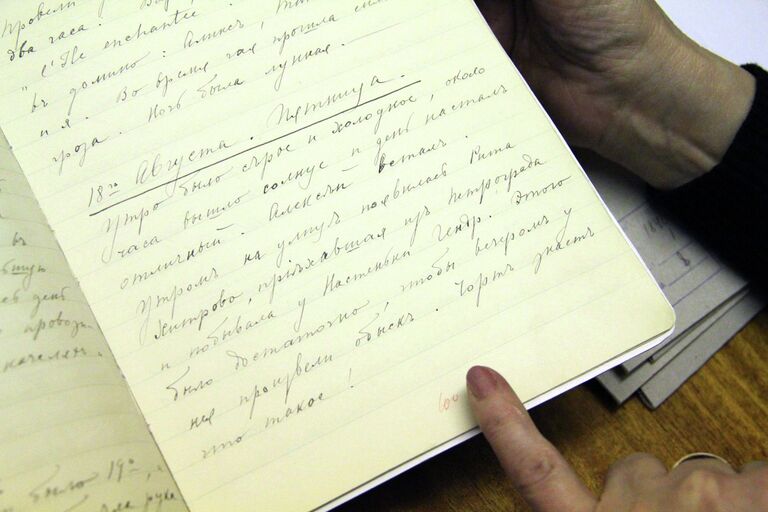 провели
два часа.
"L'Ile enchantée
въ домино: Аликсъ,
ня. Во время чая прошла
гроза. Ночь была лунная.
18го Августа. Пятница.
Утро было сѣрое и холодное, около
часа вышло солнце и день насталъ
отличный. Алексѣй всталъ.
Утромъ на улицѣ появилась Рита
Хитрово, пріѣхавшая изъ Петрограда
и побывала у Настеньки Гендр. Этого
было достаточно, чтобы вечеромъ у
нея произвели обыскъ. Чортъ знаетъ
что такое!
60
въ
день
качеляхъ.
было 19°,
руке